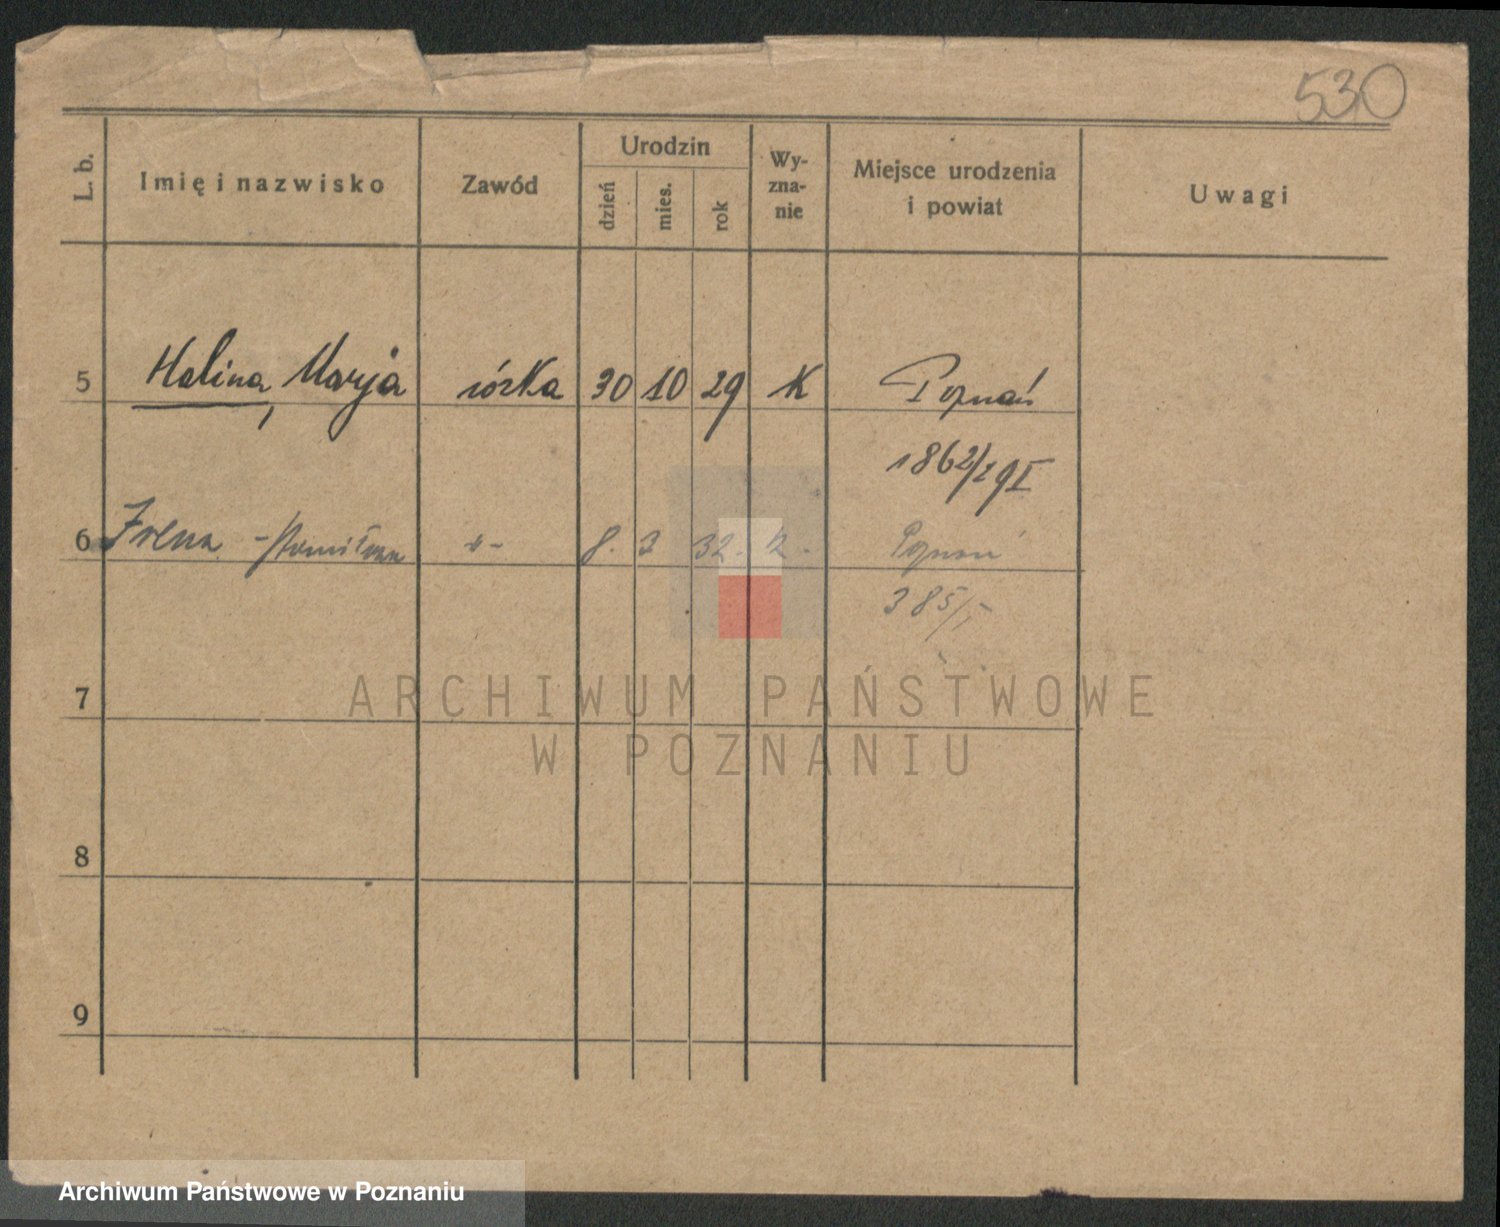 530
L. b.
Imię i nazwisko
Zawód
Urodzin
dzień
mies.
rok
Wy-
zna-
nie
Miejsce urodzenia
i powiat
Uwagi
5 Halina, Marja córka 30 10 29 K Poznań
1862/29 I
6 Irena - 8. 3 32. Poznań
385/I
7
8
9
ARCHIWUM PAŃSTWOWE
W POZNANIU
Archiwum Państwowe w Poznaniu